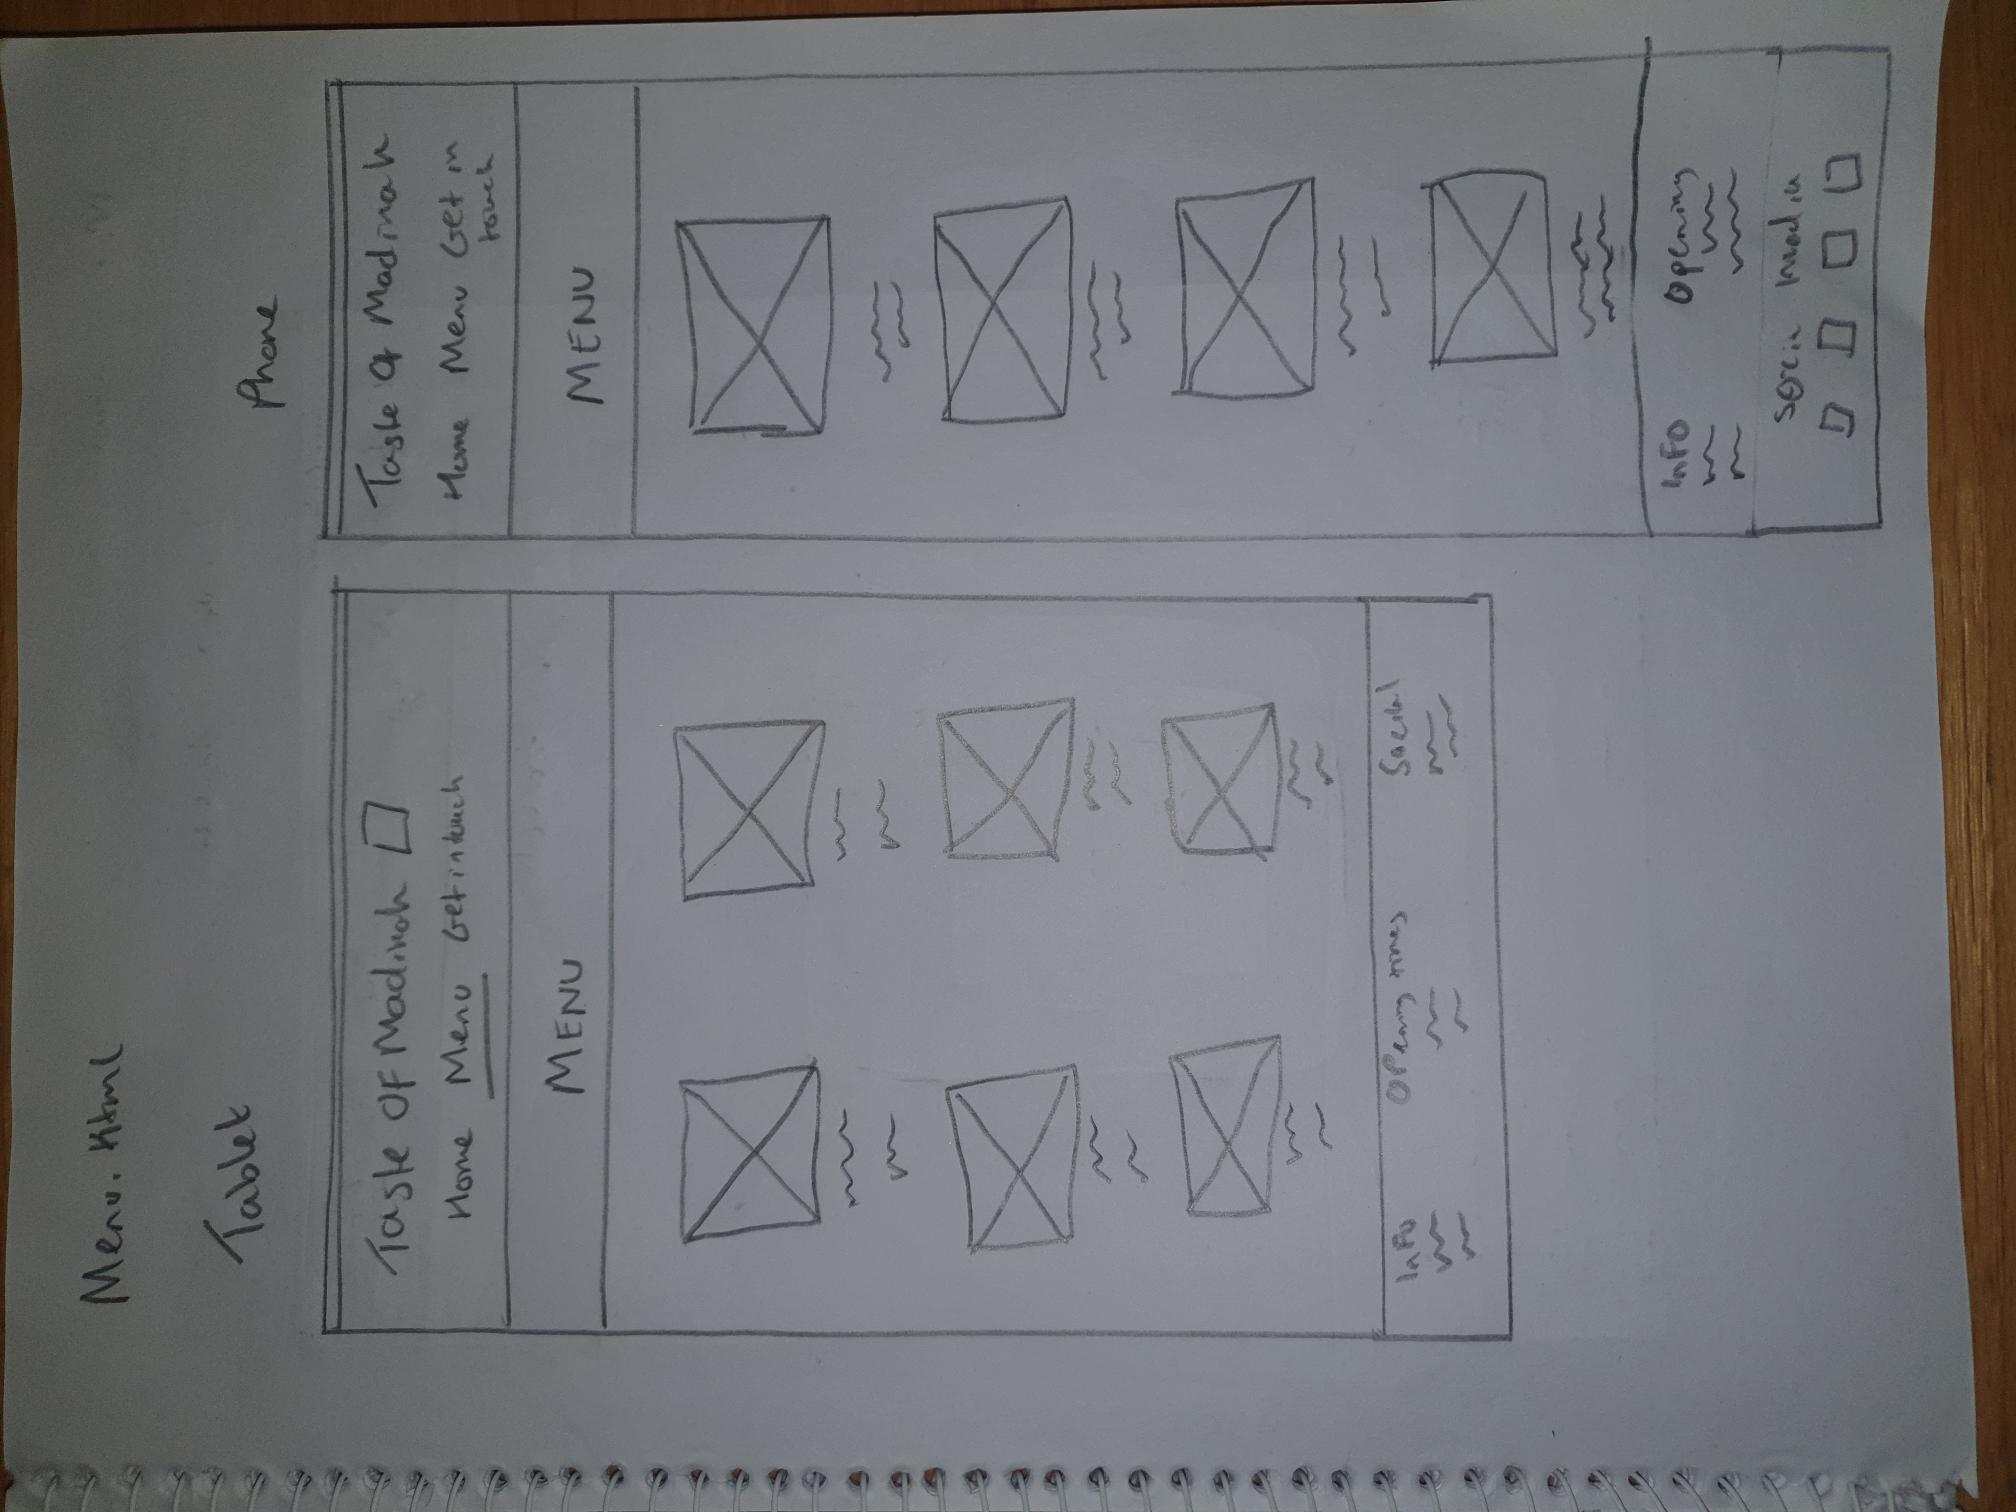 Menu. Html
Tablet
Taste OF Madinah
Home Menu Get in touch
MENU
Info
Opening times
Social
Phone
Taste Of Madinah
Home Menu Get in
touch
MENU
Info
Opening
Media